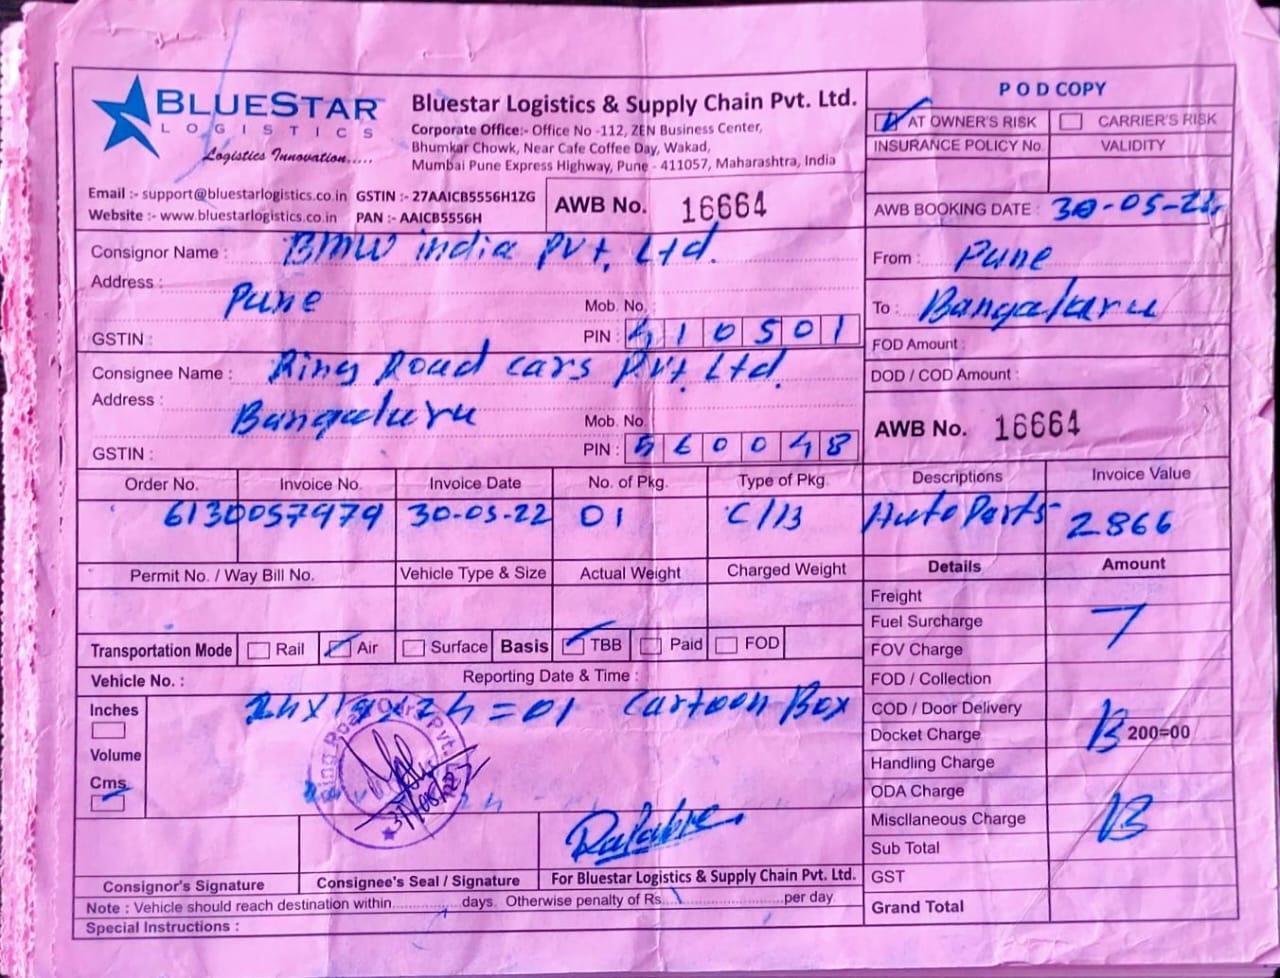 BLUESTAR
LOGISTICS
Logistics Innovation.....
Bluestar Logistics & Supply Chain Pvt. Ltd.
Corporate Office:- Office No -112, ZEN Business Center,
Bhumkar Chowk, Near Cafe Coffee Day, Wakad,
Mumbai Pune Express Highway, Pune - 411057, Maharashtra, India
POD COPY
AT OWNER'S RISK CARRIER'S RISK
INSURANCE POLICY No. VALIDITY
Email :- support@bluestarlogistics.co.in GSTIN :- 27AAICB5556H1ZG
Website :- www.bluestarlogistics.co.in PAN :- AAICB5556H
AWB No. 16664
AWB BOOKING DATE : 30-05-22
Consignor Name : BMW india Pvt. Ltd.
Address : Pune
Mob. No.
GSTIN : PIN : 410501
From : Pune
To : Bangaluru
FOD Amount :
DOD / COD Amount :
Consignee Name : Ring Road cars Pvt. Ltd.
Address : Bangaluru
Mob. No.
GSTIN : PIN : 560048
AWB No. 16664
Order No. Invoice No. Invoice Date No. of Pkg. Type of Pkg. Descriptions Invoice Value
6130057979 30-05-22 01 C/B Auto Parts 2866
Permit No. / Way Bill No. Vehicle Type & Size Actual Weight Charged Weight Details Amount
Freight
Fuel Surcharge
FOV Charge
FOD / Collection
COD / Door Delivery
Docket Charge 200=00
Handling Charge
ODA Charge
Miscllaneous Charge
Sub Total
GST
Grand Total
Transportation Mode Rail Air Surface Basis TBB Paid FOD
Vehicle No. : Reporting Date & Time :
Inches
Volume
Cms
=01 Cartoon Box
Ring Road Cars Pvt.
Consignor's Signature Consignee's Seal / Signature For Bluestar Logistics & Supply Chain Pvt. Ltd.
Note : Vehicle should reach destination within..............days. Otherwise penalty of Rs..............per day.
Special Instructions :